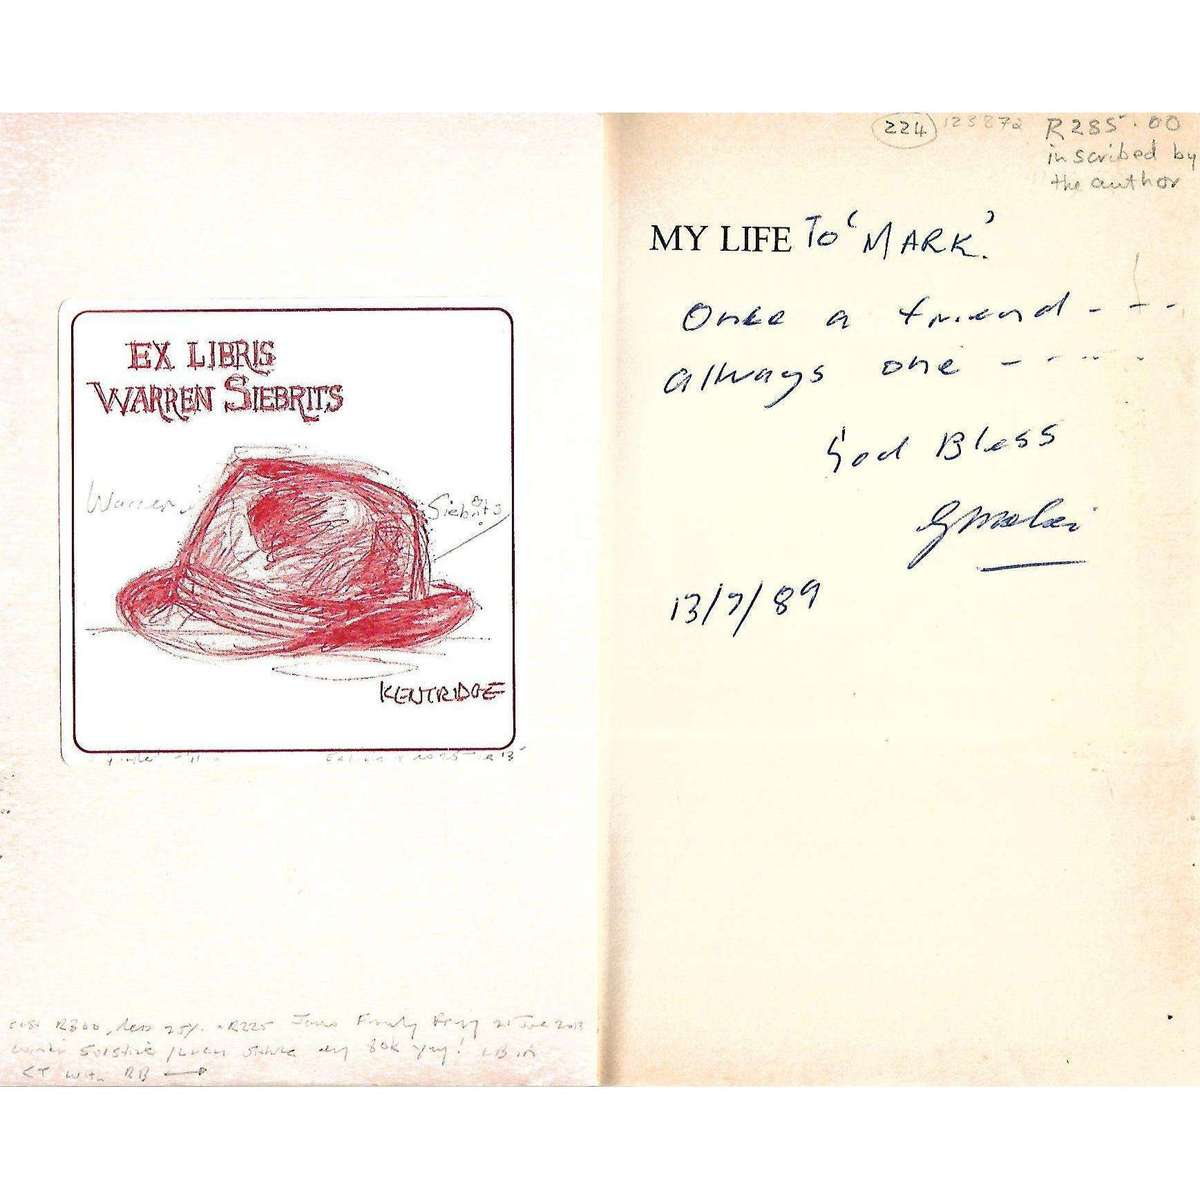 EX LIBRIS
WARREN SIEBRITS
Warren
Siebrits
KENTRIDGE
cost R300, less 25% = R225 June 2013
with RB
224 123872 R285.00
inscribed by
the author
MY LIFE TO 'MARK'.
Once a friend - - -
always one - - - - -
God Bless
13/7/89